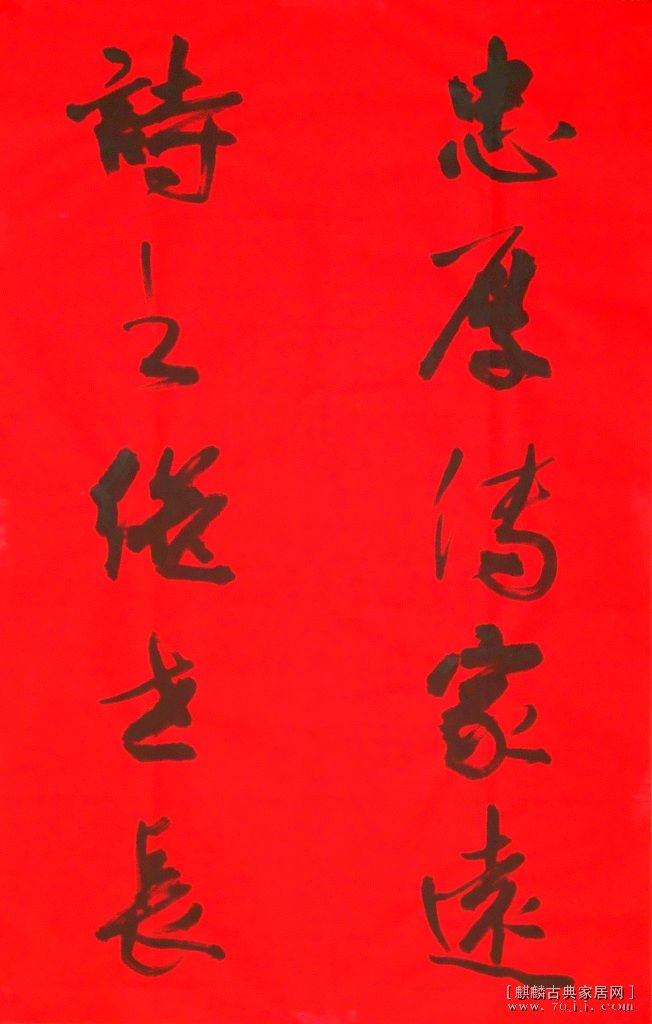 忠厚傳家遠
詩書繼世長
[麒麟古典家居网]
www.70jj.com